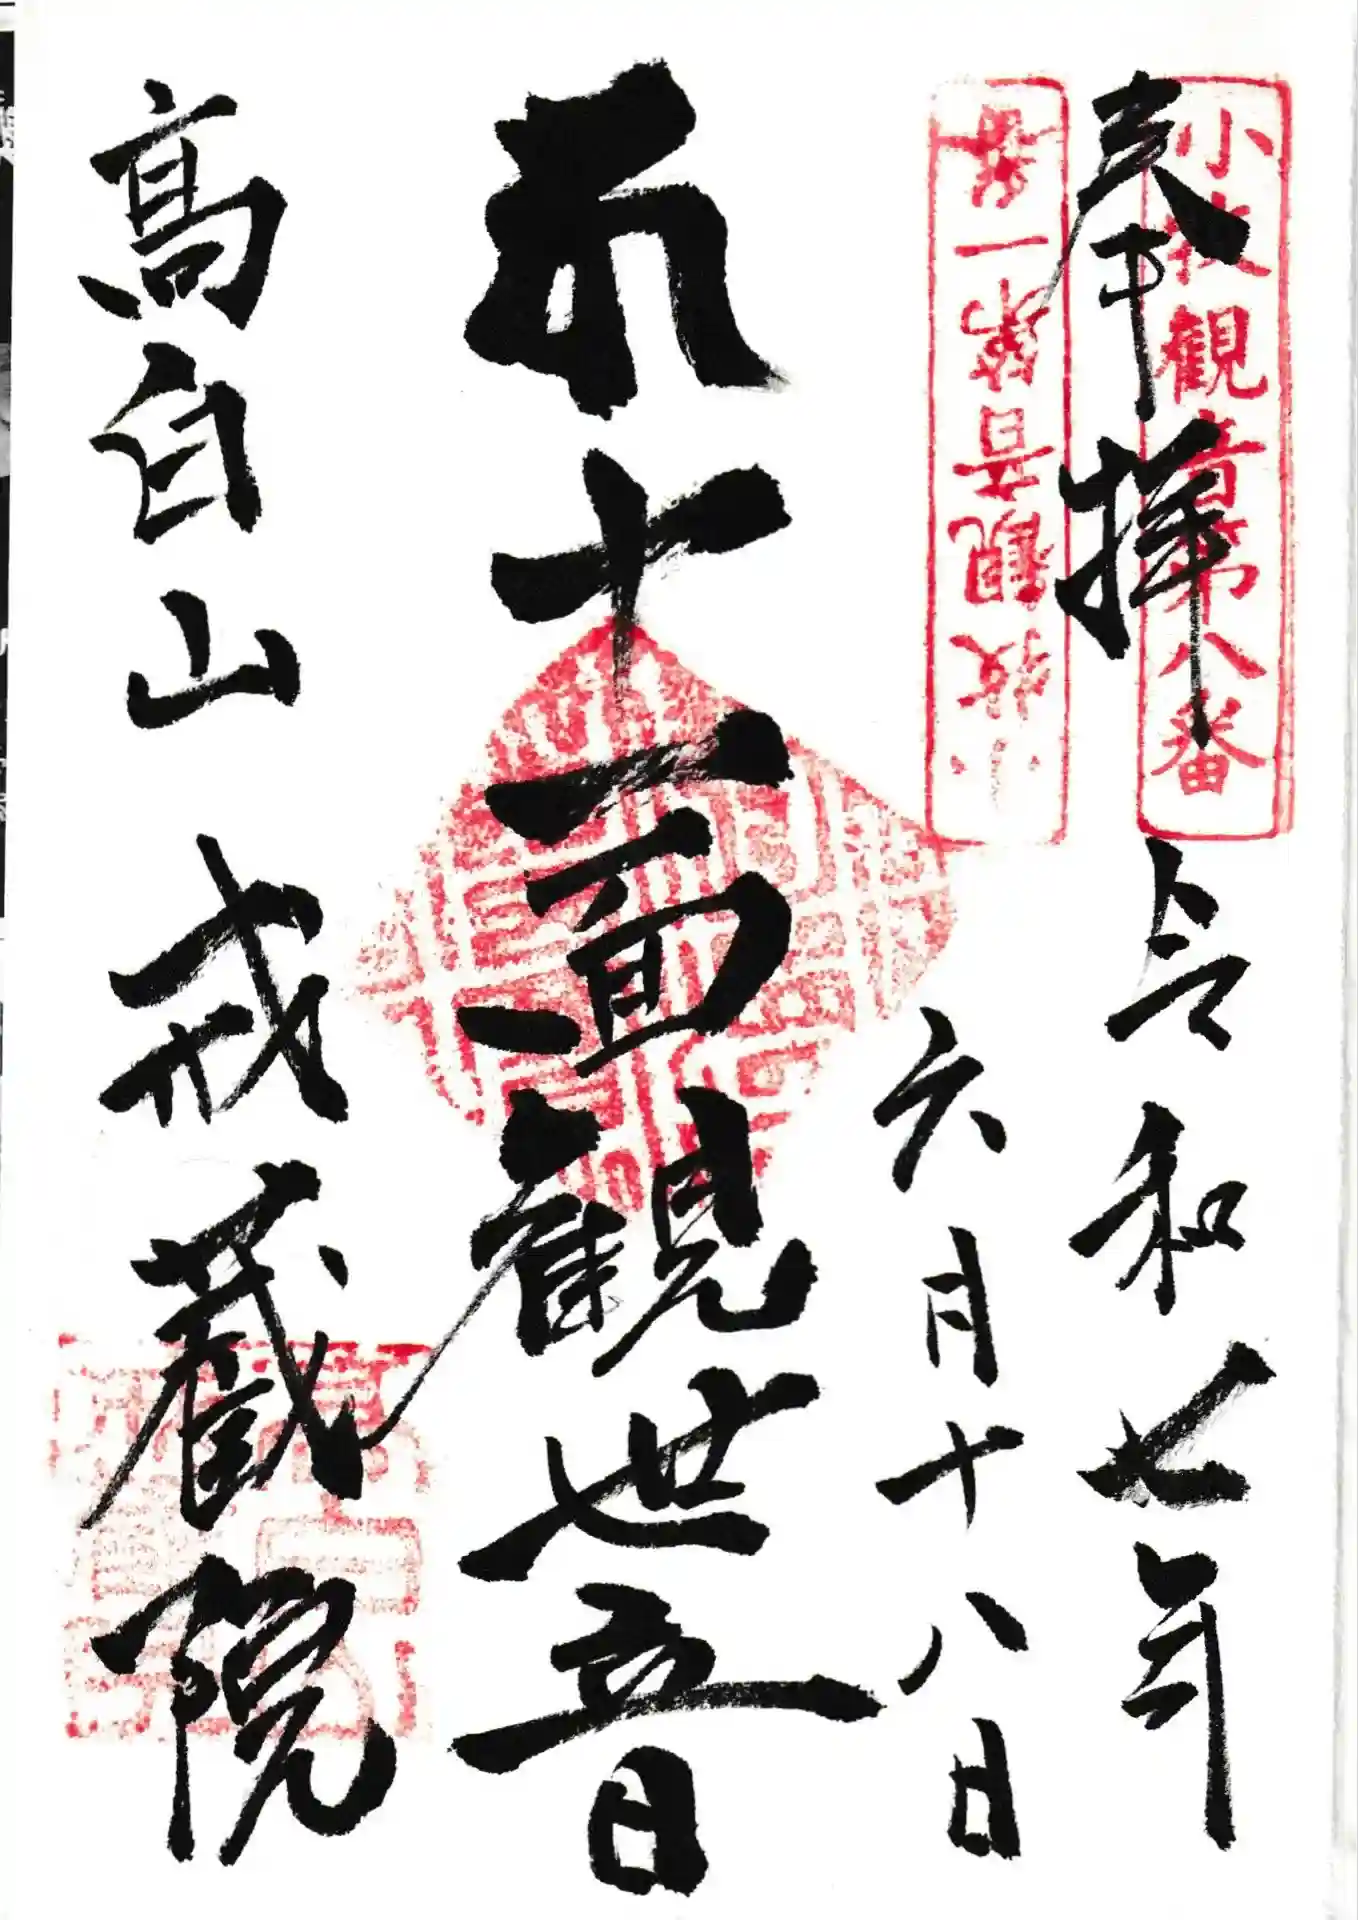 奉拝
小牧観音第八番
令和七年
小牧観音第一番
六月十八日
十一面観世音
高白山 戒蔵院